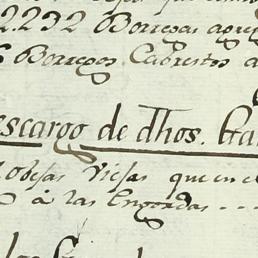 2232 Borregas agre
Borregos Cabrestos a
escargo de dhos. Ga
obejas Viejas que en el
à las Engordas - - -